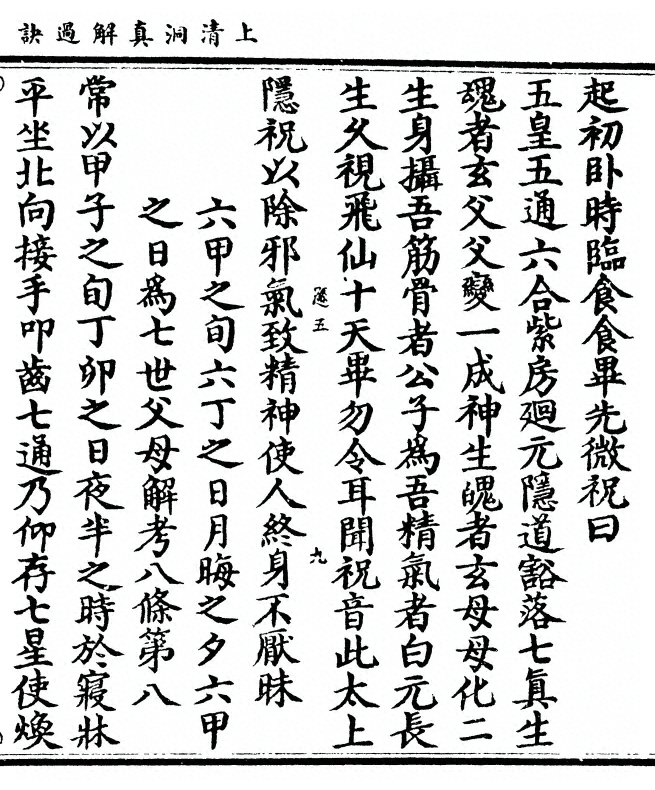 上清洞真解過訣
起初卧時臨食食畢先微祝曰
五皇五通六合紫房廻元隱道豁落七真生
魂者玄父父變一成神生魄者玄母母化二
生身攝吾筋骨者公子為吾精氣者白元長
生久視飛仙十天畢勿令耳聞祝音此太上
隧五
九
隱祝以除邪氣致精神使人終身不厭昧
六甲之旬六丁之日月晦之夕六甲
之日為七世父母解考八條第八
常以甲子之旬丁卯之日夜半之時於寢牀
平坐北向接手叩齒七通乃仰存七星使煥